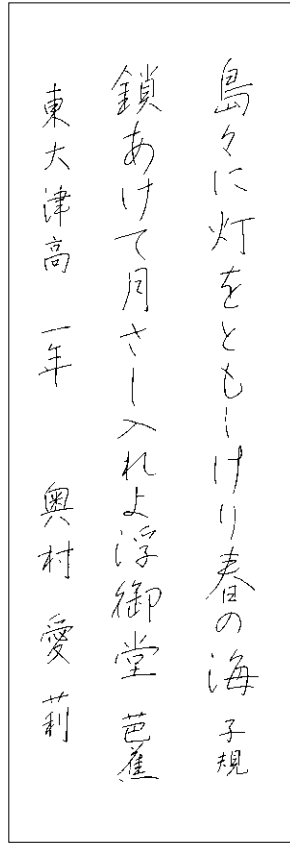 島々に灯をともしけり春の海 子規
鎖あけて月さし入れよ浮御堂 芭蕉
東大津高 一年 奥村愛莉